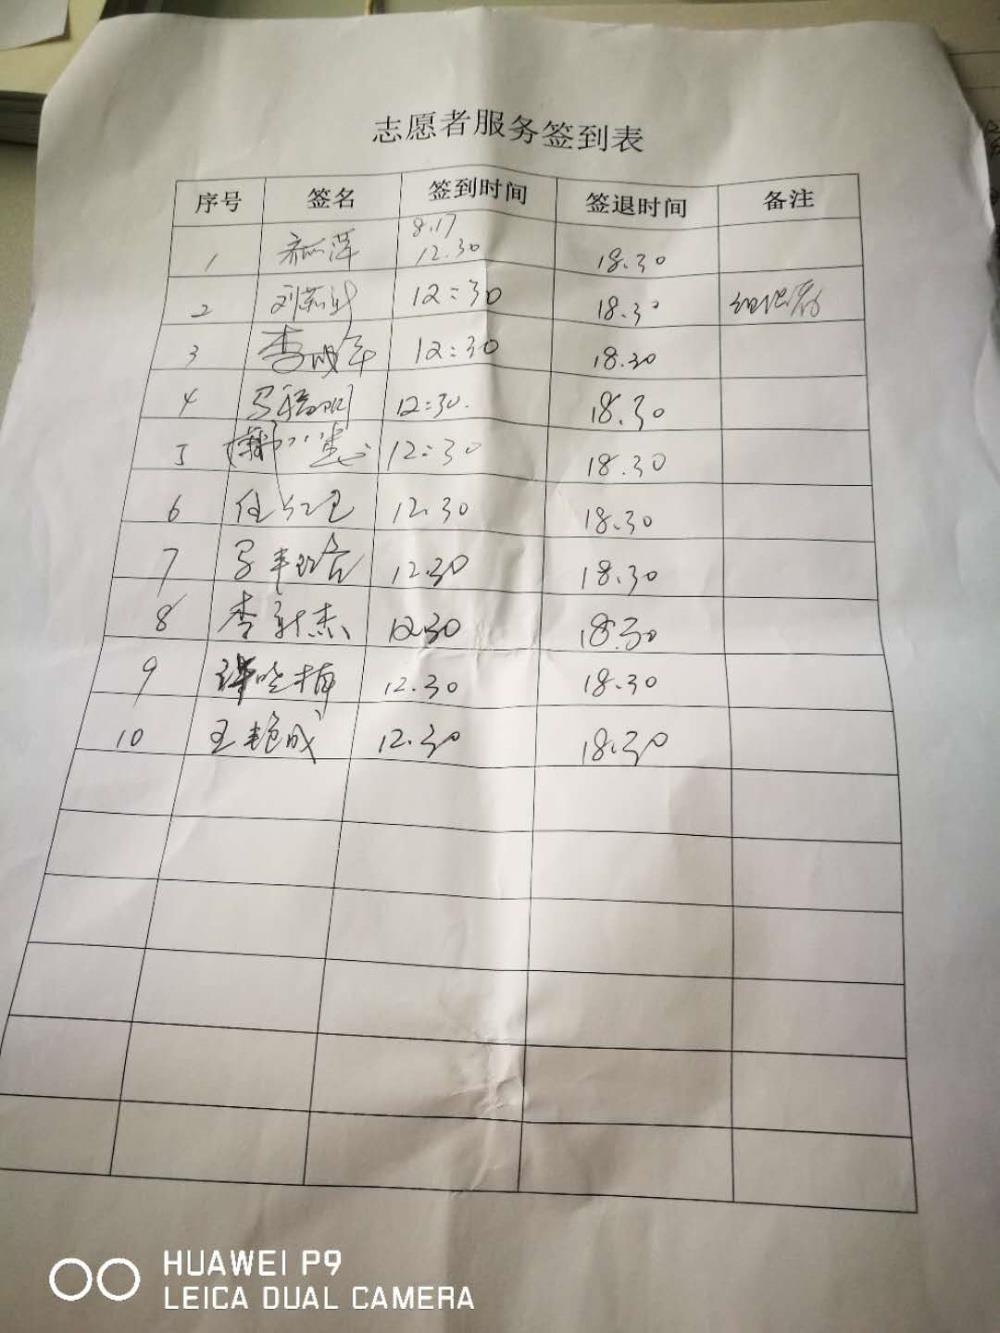 志愿者服务签到表
序号 签名 签到时间 签退时间 备注
8.17
1 12.30 18.30
2 12:30 18.30 组织者
3 李成军 12:30 18.30
4 马聪明 12:30. 18.30
5 12:30 18.30
6 任红卫 12.30 18.30
7 马 12.30 18.30
8 李新杰 12.30 18.30
9 12.30 18.30
10 王艳成 12.30 18.30
HUAWEI P9
LEICA DUAL CAMERA